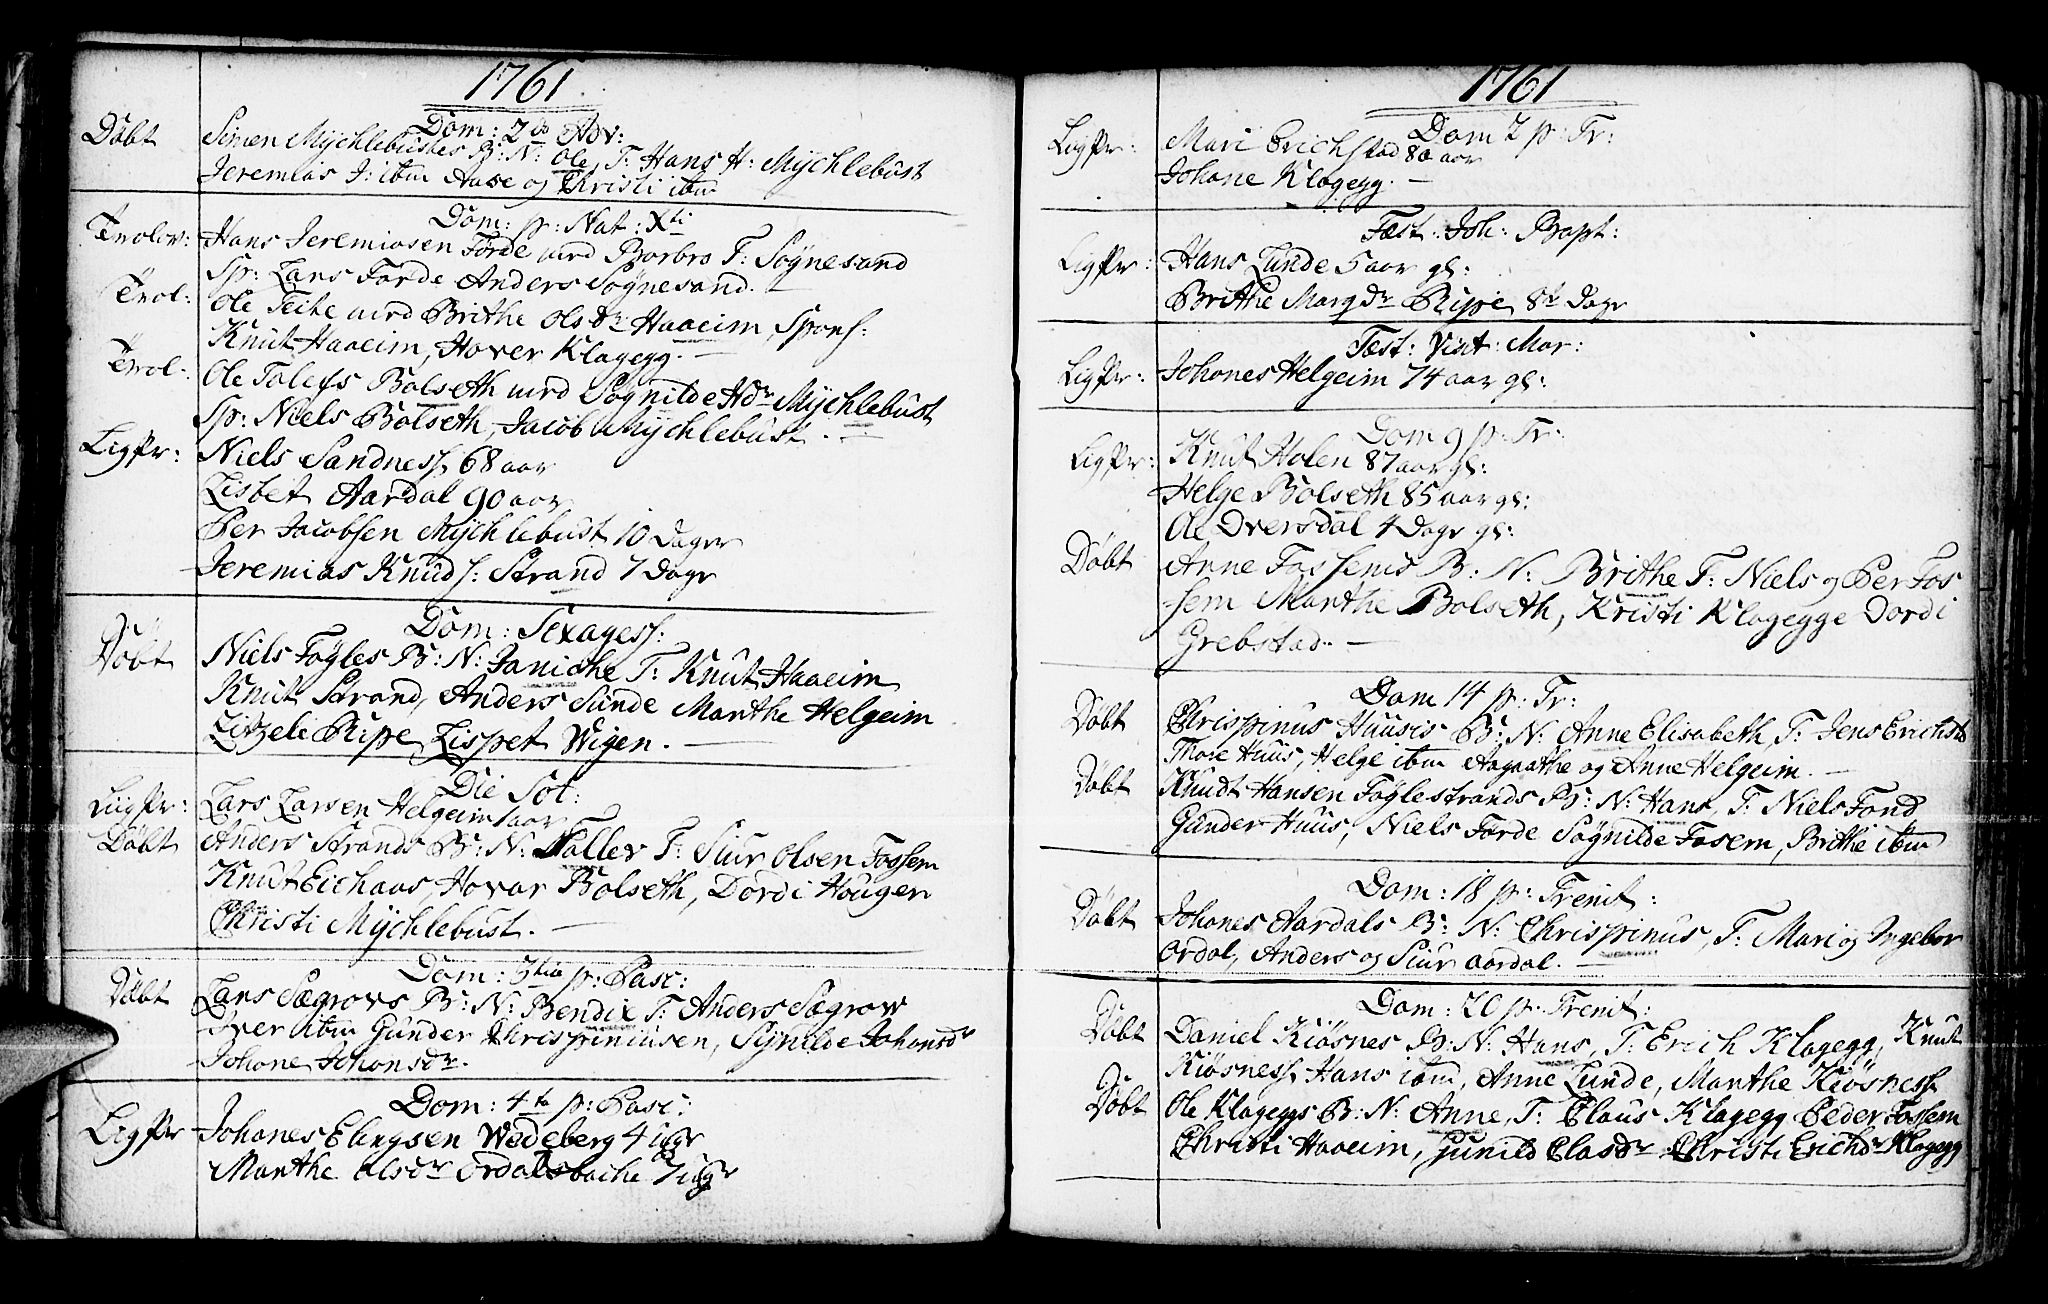 1761
Dom: 2do Adv:
Döbt Simen Mychlebustes B: N: Ole, T: Hans H: Mychlebust
Jeremias J: ibm Aase og Christi ibm
Dom: p: Nat: Xti
Trolov: Hans Jeremiasen Förde med Barbro T: Sögnesand
Sp: Lars Förde Anders Sögnesand. —
Trol: Ole Teite med Brithe Olsdr Haaeim, Spons:
Knut Haaeim, Hover Klagegg. —
Trol: Ole Tolefs Bolseth med Sögnilde Hdr Mychlebust
Sp: Niels Bolseth, Jacob Mychlebust. —
Ligpr: Niels Sandness, 68 aar
Lisbet Aardal 90 aar
Per Jacobsen Mychlebust 10 Dager
Jeremias Knuds: Strand 7 Dage
Dom: Sexagess:
Döbt Niels Föyles B: N: Janiche T: Knut Haaeim
Knut Strand, Anders Sunde Marthe Helgeim
Litzeli Ripe, Lispet Wigen. —
Die Sol:
Liigpr: Lars Larsen Helgeim 1 aar
Döbt Anders Strands B: N: Taller T: Siur Olsen Fossem
Knut Eichaas, Hovar Bolseth, Dordi Houger
Christi Mychlebust. —
Dom: 3tia p: Pasc:
Döbt Lars Sægrovs B: N: Bendix T: Anders Sægrov
Iver ibm Gunder Chrispiniusen, Synilde Johansdr
Johane Johansdr.
Dom: 4ta p: Pasc:
Ligpr Johanes Elingsen Wedeberg 4 uger
Marthe Olsdr Ordalsbache 7 uger
1761
Dom 2 p: Tr:
Ligpr: Mari Erichstad 80 aar
Johane Klagegg. —
Fæst: Joh: Bapt:
Ligpr: Hans Lunde 5 aar gl:
Brithe Marqdr Ripe, 8te Dage
Fæst: Visit: Mar:
Ligpr: Johanes Helgeim 74 aar gl:
Dom 9 p: Tr:
Ligpr: Knut Holen 87 aar gl:
Helge Bolseth 85 aar gl:
Ole Dversdal 4 Dage gl:
Döbt Arne Fossems B: N: Brithe T: Niels og Per Fos
sem Marthe Bolseth, Kristi Klagegge Dordi
Grebstad. —
Dom 14 p: Tr:
Döbt Chrispinus Huusis B: N: Anne Elisabeth, T: Jens Erichstd
Thore Huus, Helge ibm Aagaathe og Anne Helgeim. —
Döbt Knudt Hansen Föylestrands B: N: Hans, T: Niels Fond
Gunder Huus, Niels Förde Sögnilde Fosem, Brithe ibm
Dom: 18 p: Trenit:
Döbt Johanes Aardals B: N: Chrispinus, T: Mari og Ingebor
Ordal, Anders og Siur Aardal. —
Dom: 20 p: Trenit:
Döbt Daniel Kiösnes B: N: Hans, T: Erich Klagegg, Knut
Kiösness, Hans ibm, Anne Lunde, Marthe Kiösness
Döbt Ole Klageggs B: N: Anne, T: Claus Klagegg Peder Fossem
Christi Haaeim, Gunild Clasdr Christi Erichdr Klagegg